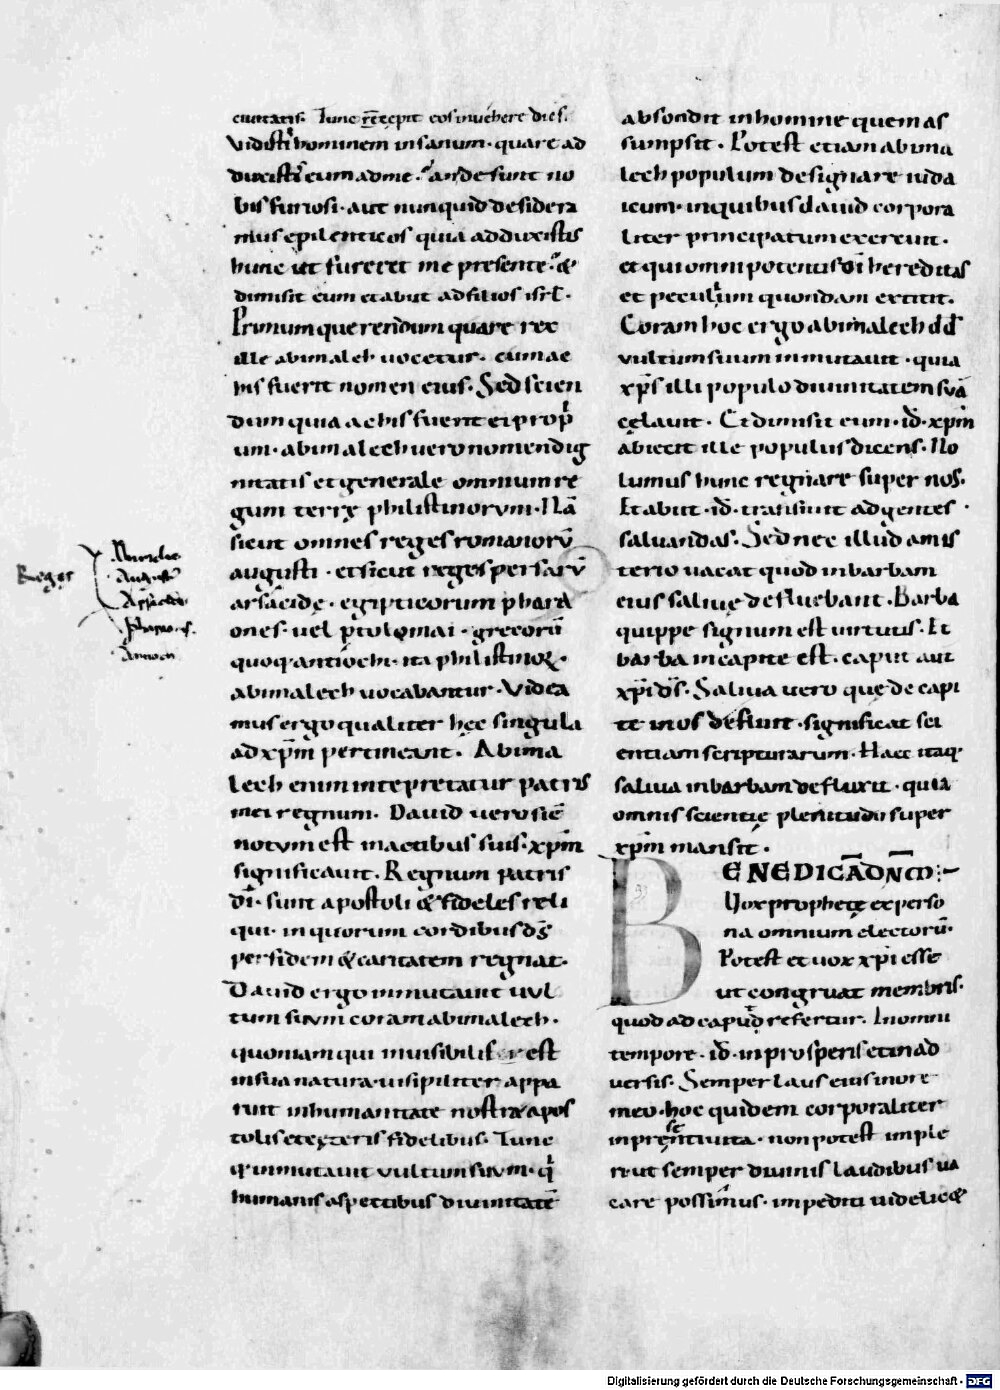 ciuitatis. Tunc recepit eos inuehere dices.
Vidistis hominem insanum · quare ad
duxistis eum ad me. an desunt no
bis furiosi · aut nunquid desidera
mus epilenticos quia adduxistis
hunc ut fureret me presente. &
dimisit eum et abiit ad filios isrl̅.
Primum querendum quare rex
ille abimaleh uocetur. cum ae
his fuerit nomen eius. Sed scien
dum quia achis fuerit ei propri
um · abimalech uero nomen dig
nitatis et generale omnium re
gum terrę philistinorum. Nā
sicut omnes reges romanorū
augusti · et sicut reges persarū
arsacidę · egipticorum phara
ones · uel ptolomai · grecorū
quoq; antiochi · ita philistinoꝝ ·
abimalech uocabantur · Videa
mus ergo qualiter hęc singula
ad xp̅m pertineant. Abima
lech enim intepretatur patris
mei regnum. David uero sic̄
notum est in actibus suis · xp̅m
significauit. Regnum patris
di̅ · sunt apostoli & fideles reli
qui · in quorum cordibus ds̅
per fidem & caritatem regnat.
David ergo inmutauit uul
tum suum coram abimalech ·
quoniam qui inuisibilis est
in sua natura · uisibiliter appa
ruit in humanitate nostra apos
tolis et cęteris fidelibus. Tunc
q; inmutauit uultum suum · q̅
humanis aspectibus diuinitatē
Reges
Augusti
Arsacidę
Pharaones
Antioch
abscondit in homine quem as
sumpsit. Potest etiam abima
lech populum designare iuda
icum · in quibus dauid corpora
liter principatum exercuit.
et qui omnipotentis di̅ hereditas
et peculium quondam extitit.
Coram hoc ergo abimalech dd̅
vultum suum inmutauit · quia
xp̅s illi populo diuinitatem suā
cęlauit. Et dimisit eum · id̅ · xp̅m
abiecit ille populus dicens. No
lumus hunc regnare super nos.
Et abiit · id̅ · transiuit ad gentes
saluandas. Sed nec illud a mis
terio uacat quod in barbam
eius saliuę defluebant. Barba
quippe signum est uirtutis. Et
barba in capite est. caput aut
xp̅i ds̅. Saliua uero que de capi
te in os defluit · significat sci
entiam scripturarum. Haec itaq;
saliua in barbam defluxit · quia
omnis scientię plenitudo super
xp̅m mansit.
BENEDICĀ DN̄M
Uox prophetę ex perso
na omnium electorū.
Potest et uox xp̅i esse
ut congruat membris.
quod ad capud refertur. In omni
tempore · id̅ · in prosperis et in ad
uersis. Semper laus eius in ore
meo · hoc quidem corporaliter
in presenti uita · non potest imple
ri ut semper diuinis laudibus ua
care possimus · impediti uidelic&
Digitalisierung gefördert durch die Deutsche Forschungsgemeinschaft - DFG